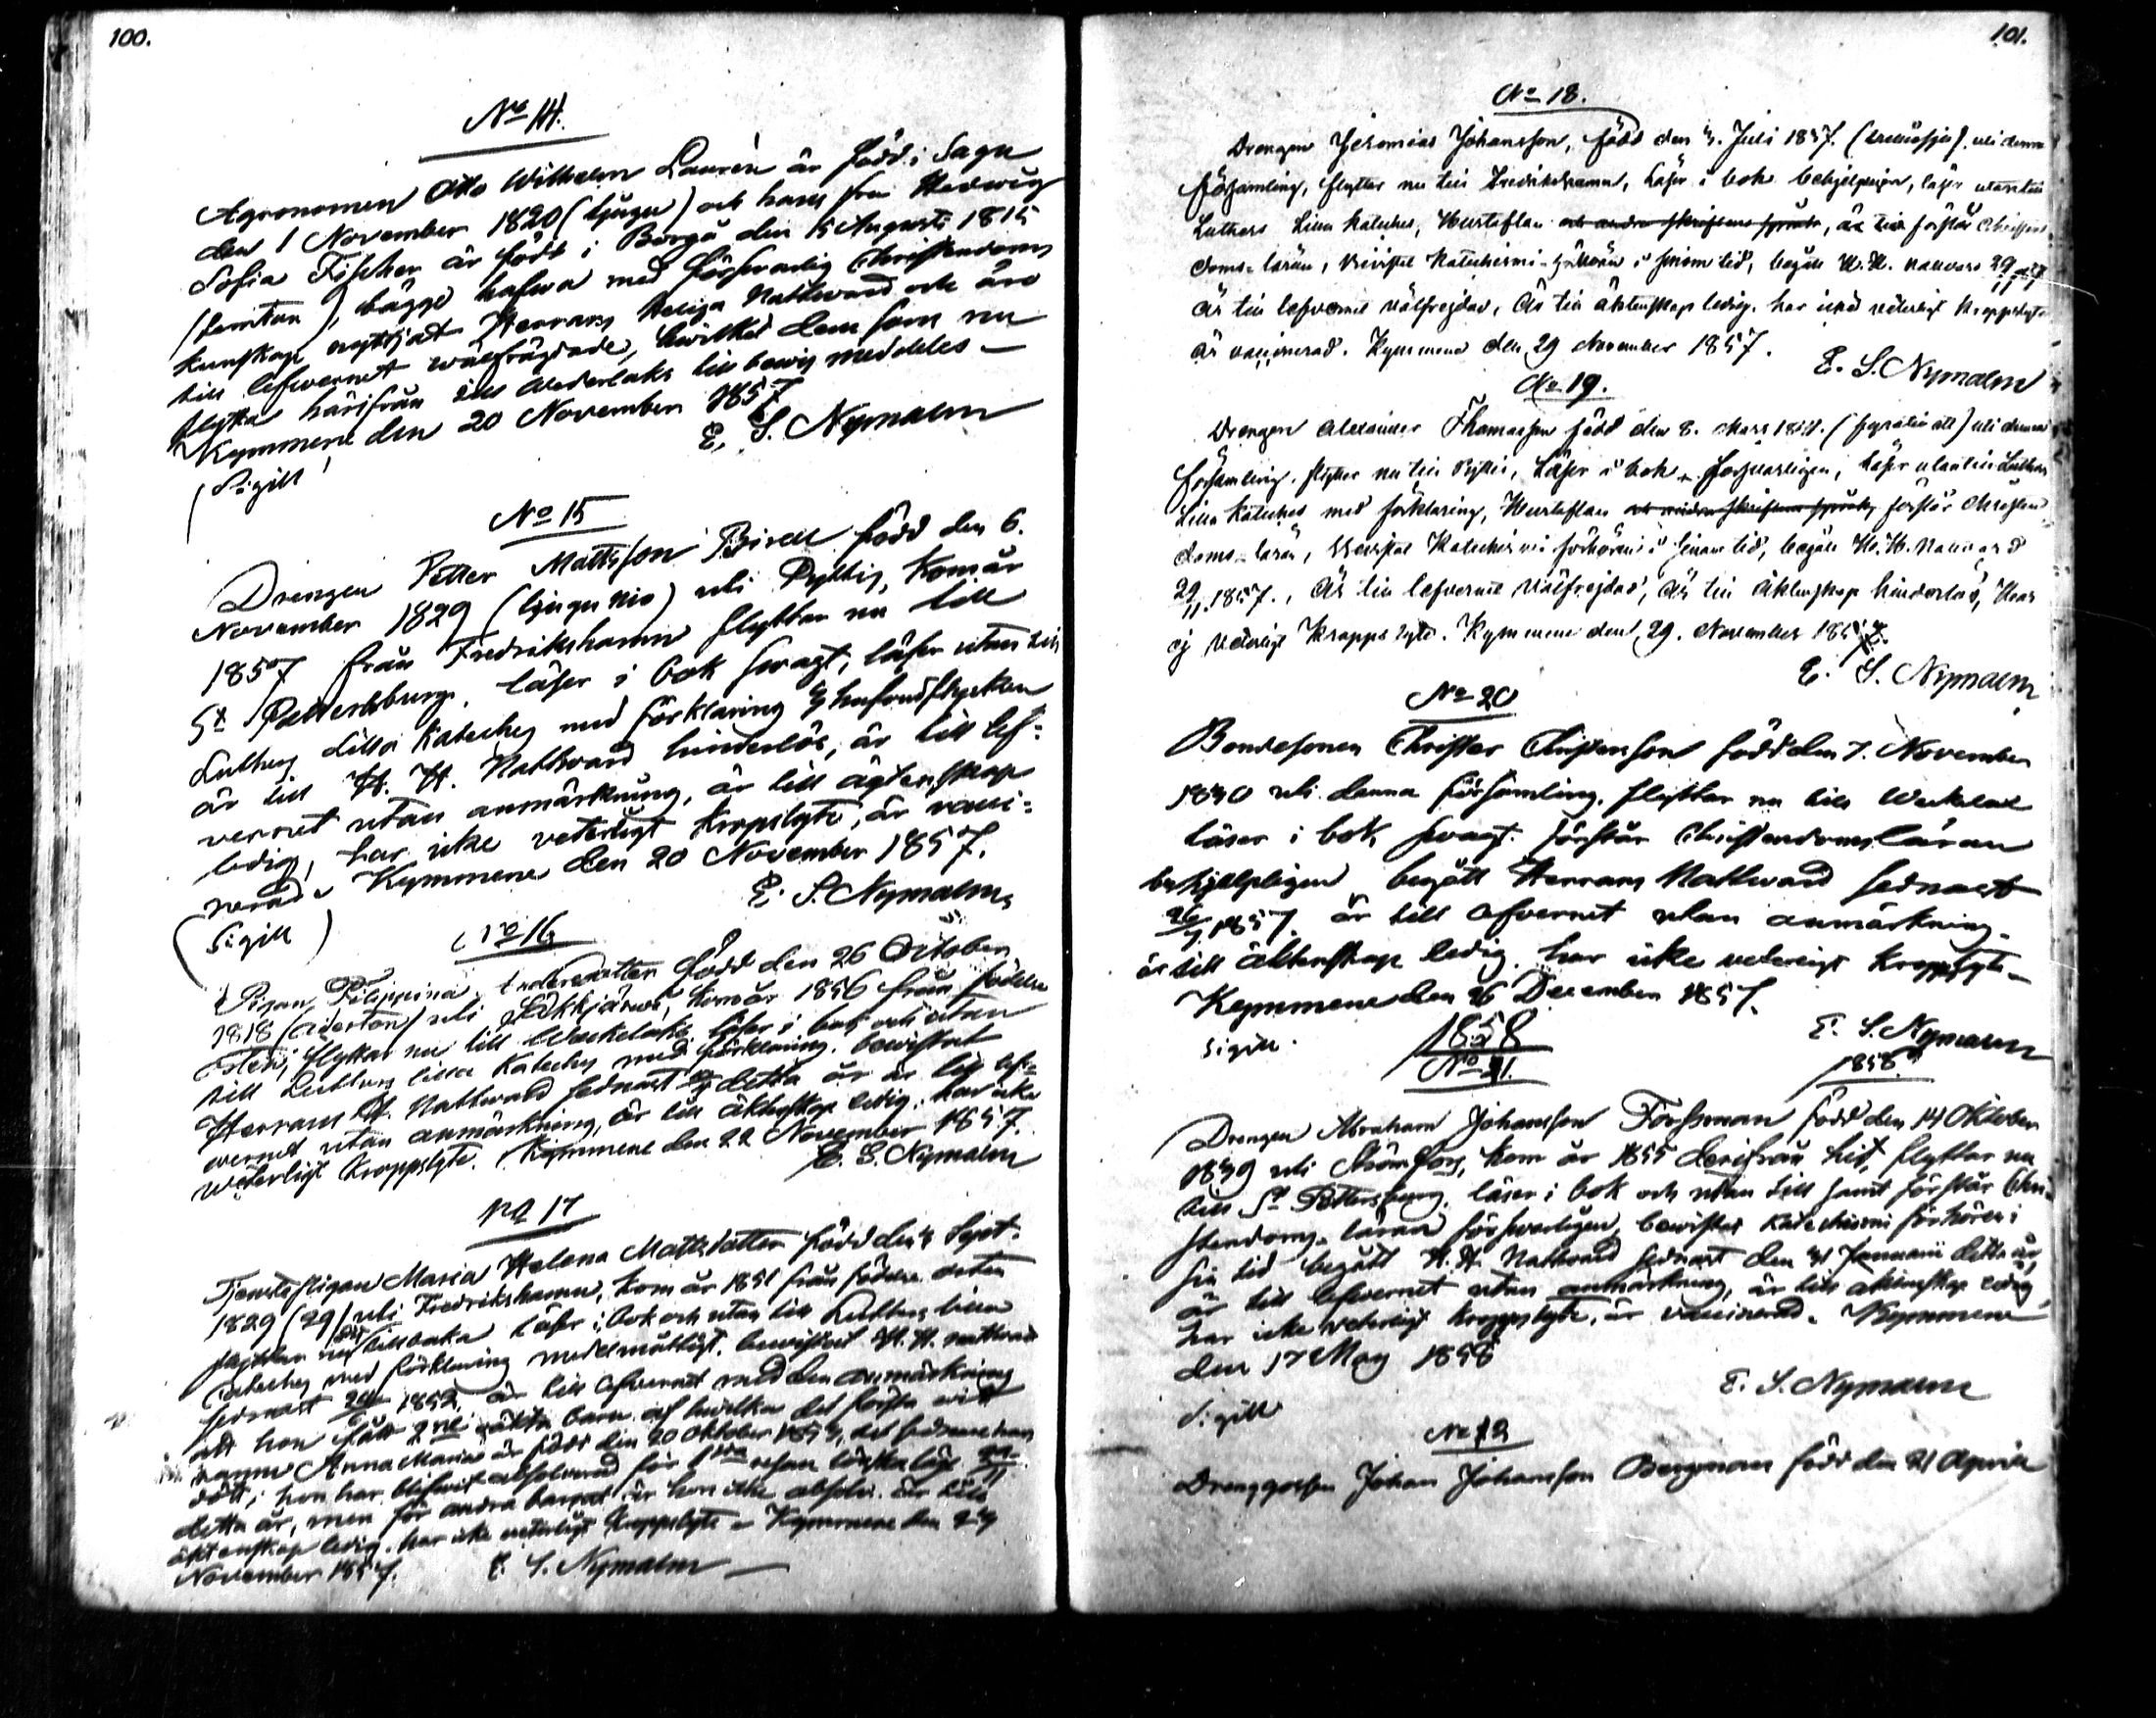 100.
No 14.
Agronomen Otto Wilhelm Laurén är född i Sagu
den 1 November 1820 (tjugu) och hans fru Hedwig
Sofia Fischer är född i Borgå den 15 Augusti 1815
(femton), bägge hafwa med försvarlig Christendoms
kunskap nyttjat Herrans Heliga Nattward och äro
till lefwernet wälfrägdade, hwilket dem som nu
flytta härifrån till Wederlaks till bewis meddeles -
Kymmene den 20 November 1857
E. S. Nymalm
(Sigill)
No 15
Drengen Petter Mattsson Birell född den 6.
November 1829 (tjugu nio) uti Pyttis, Kom år
1857 från Fredrikshamn flyttar nu till
St Pettersburg, läser i bok swagt, läser utan till
Luthers Lilla Kateches med förklaring hufvudstycken
är till H. H. Nattvard hinderlös, är till lef-
vernet utan anmärkning, är till ägtenskap
ledig, har icke veterligt kropslyte, är vacci-
nerad. Kymmene den 20 November 1857.
E. S. Nymalm
(Sigill)
No 16
Pigan Filippina född den 26 October
1818 (aderton) uti Säkkjärwi, kom år 1856 från födelse
orten, flyttar nu till Weckelaks läser i bok och utan
till Luthers lilla Kateches med förklaring. bewistat
Herrans H. Nattward sednast detta år är till lef-
wernet utan anmärkning, är till äktenskap ledig. har icke
weterligt Kroppslyte. Kymmene den 22 November 1857.
E. S. Nymalm
No 17
Tjenstepigan Maria Helena Mattsdotter född den 4 Sept.
1829 (29) uti Fredrikshamn, kom år 1851 från födelse orten
flyttar nu dit tillbaka läser i bok och utan till Luthers lilla
Kateches med förklaring medelmåttigt. bewistat H. H. nattvard
sednast 1852, är till lefvernet med den anmärkning
att hon fått 2ne oäkta barn af hwilka det första wid
namn Anna Maria är född den 20 Oktober 1854, det sednare har
dött; hon har blifwit absolverad för 1sta resan lönskaläge
detta år, men för andra barnet är hon icke absolv. är till
äktenskap ledig. har icke weterligt Kroppslyte - Kymmene den 24
November 1857. E. S. Nymalm
101.
No 18.
Drengen Jeremias Johansson, född den 4. Juli 1837. uti denna
församling, flyttar nu till Fredrikshamn, Läser i bok behjelpligen, läser utantill
Luthers Lilla Kateches, Hustaflan och andra skriftens språk, förstår Christen
doms-läran, bevistat Katechismi-förhören i sinom tid, begått H.H. nattvard 29/11 57
är till lefvernet välfrejdad, är till äktenskap ledig. har icke veterligt kroppslyte
är vaccinerad. Kymmene den 29 November 1857.
E. S. Nymalm
No 19.
Drengen Alexander Thomasson född den 8. Mars uti denna
församling, flyttar nu till Pyttis, Läser i bok försvarligen, läser utantill Luthers
Lilla Kateches med förklaring, Hustaflan och andra skriftens språk, förstår Christen
doms-läran, bevistat Katechismi förhören i sinom tid, begått H. H. Nattvard
29/11 1857., är till lefvernet välfrejdad, är till äktenskap hinderlös, Har
ej veterligt Kroppslyte. Kymmene den 29. November 1857.
E. S. Nymalm
No 20
Bondesonen Christer Christersson född den 7. November
1840 uti denna församling, flyttar nu till Weckelax
läser i bok swagt. förstår Christendomsläran
behjelpligen begått Herrans Nattward sednast
26/7 1857. är till lefvernet utan anmärkning.
är till äktenskap ledig. har icke veterligt kroppslyte -
Kymmene den 26 December 1857.
E. S. Nymalm
Sigill.
1858
No 21.
1858.
Drengen Abraham Johansson Forssman född den 14 Oktober
1839 uti Strömfors, kom år 1855 derifrån hit, flyttar nu
till St Pettersburg, läser i bok och utan till samt förstår Chri-
stendoms-läran försvarligen, bewistat Katechismi förhören i
sin tid begått H. H. Nattvard sednast den 31 Januarii detta år,
är till lefvernet utan anmärkning, är till äktenskap ledig,
har icke veterligt kroppslyte, är vaccinerad. Kymmene
den 17 May 1858
E. S. Nymalm
Sigill
No 12
Drenggossen Johan Johansson Bergman född den 21 April